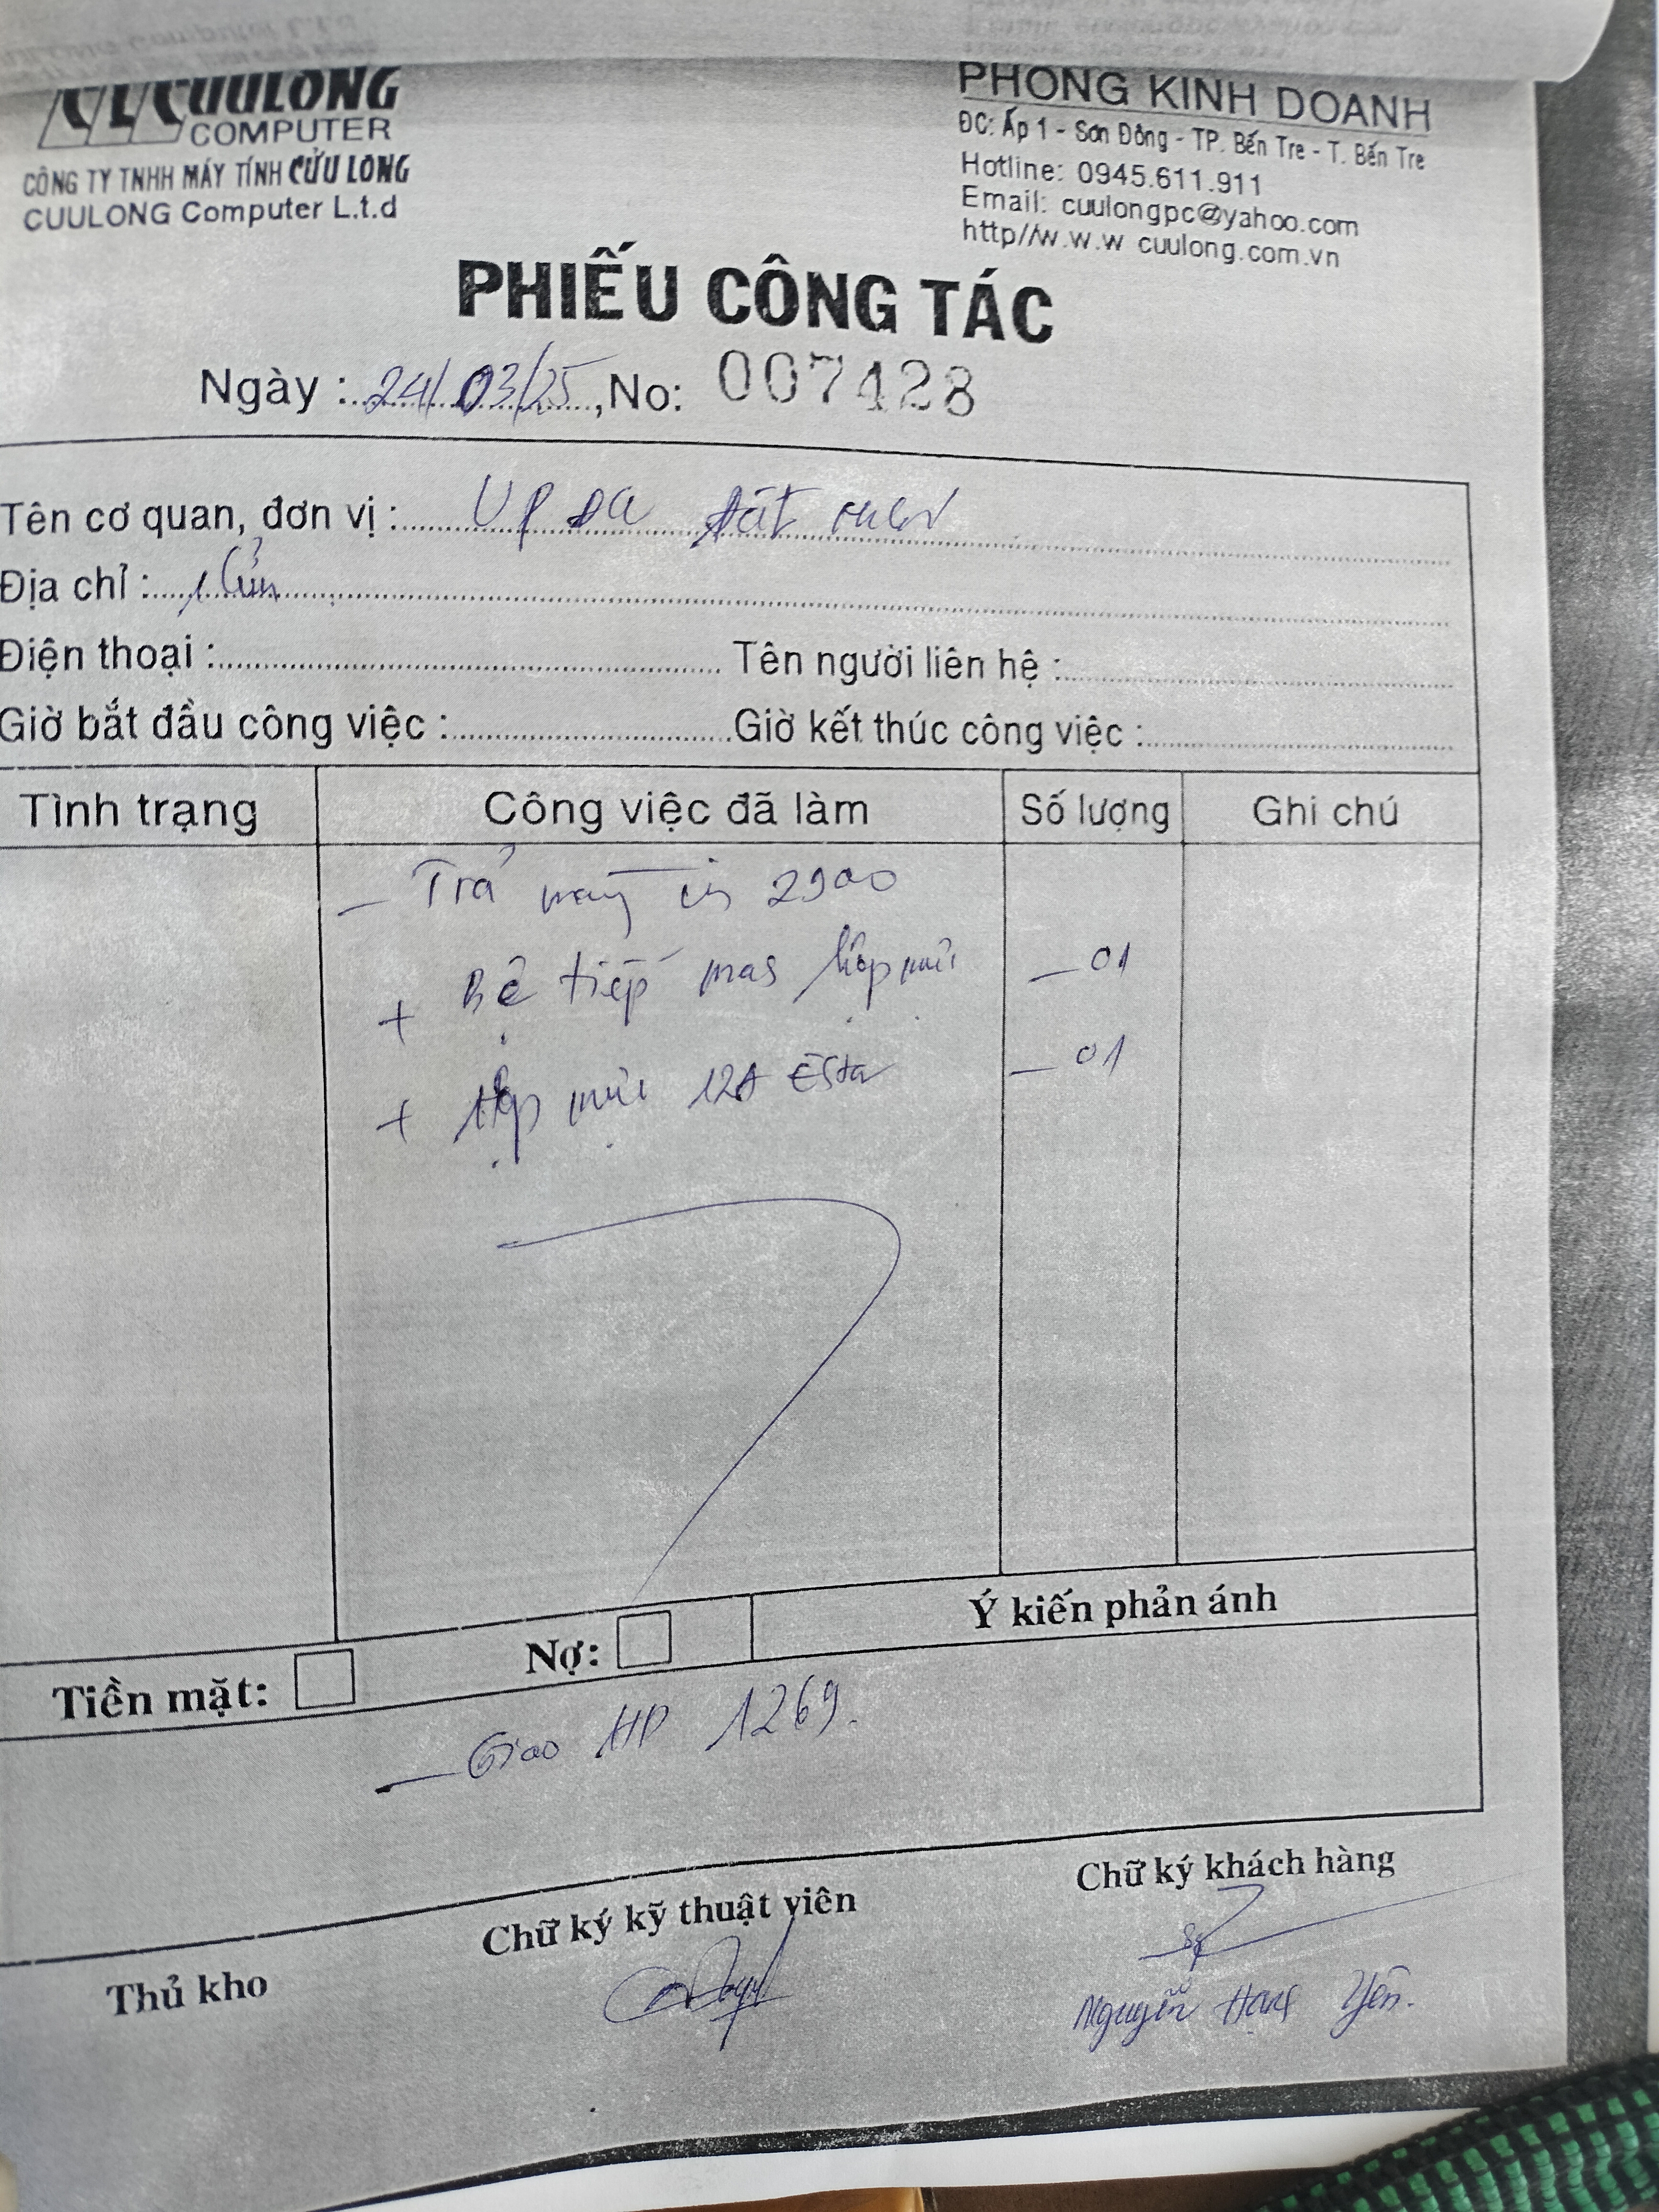 CUULONG
COMPUTER
CÔNG TY TNHH MÁY TÍNH CỬU LONG
CUULONG Computer L.t.d
PHÒNG KINH DOANH
ĐC: Ấp 1 - Sơn Đông - TP. Bến Tre - T. Bến Tre
Hotline: 0945.611.911
Email: cuulongpc@yahoo.com
http//w.w.w cuulong.com.vn
PHIẾU CÔNG TÁC
Ngày : 24/03/25, No: 007428
Tên cơ quan, đơn vị :
Địa chỉ :
Điện thoại : Tên người liên hệ :
Giờ bắt đầu công việc : Giờ kết thúc công việc :
Tình trạng Công việc đã làm Số lượng Ghi chú
- Trả máy in 2900
+ Bệ tiếp mas hộp mực - 01
+ Hộp mực 12A Esta - 01
Tiền mặt: Nợ: Ý kiến phản ánh
- Giao HP 1269.
Thủ kho Chữ ký kỹ thuật viên Chữ ký khách hàng
Nguyễn Yên.